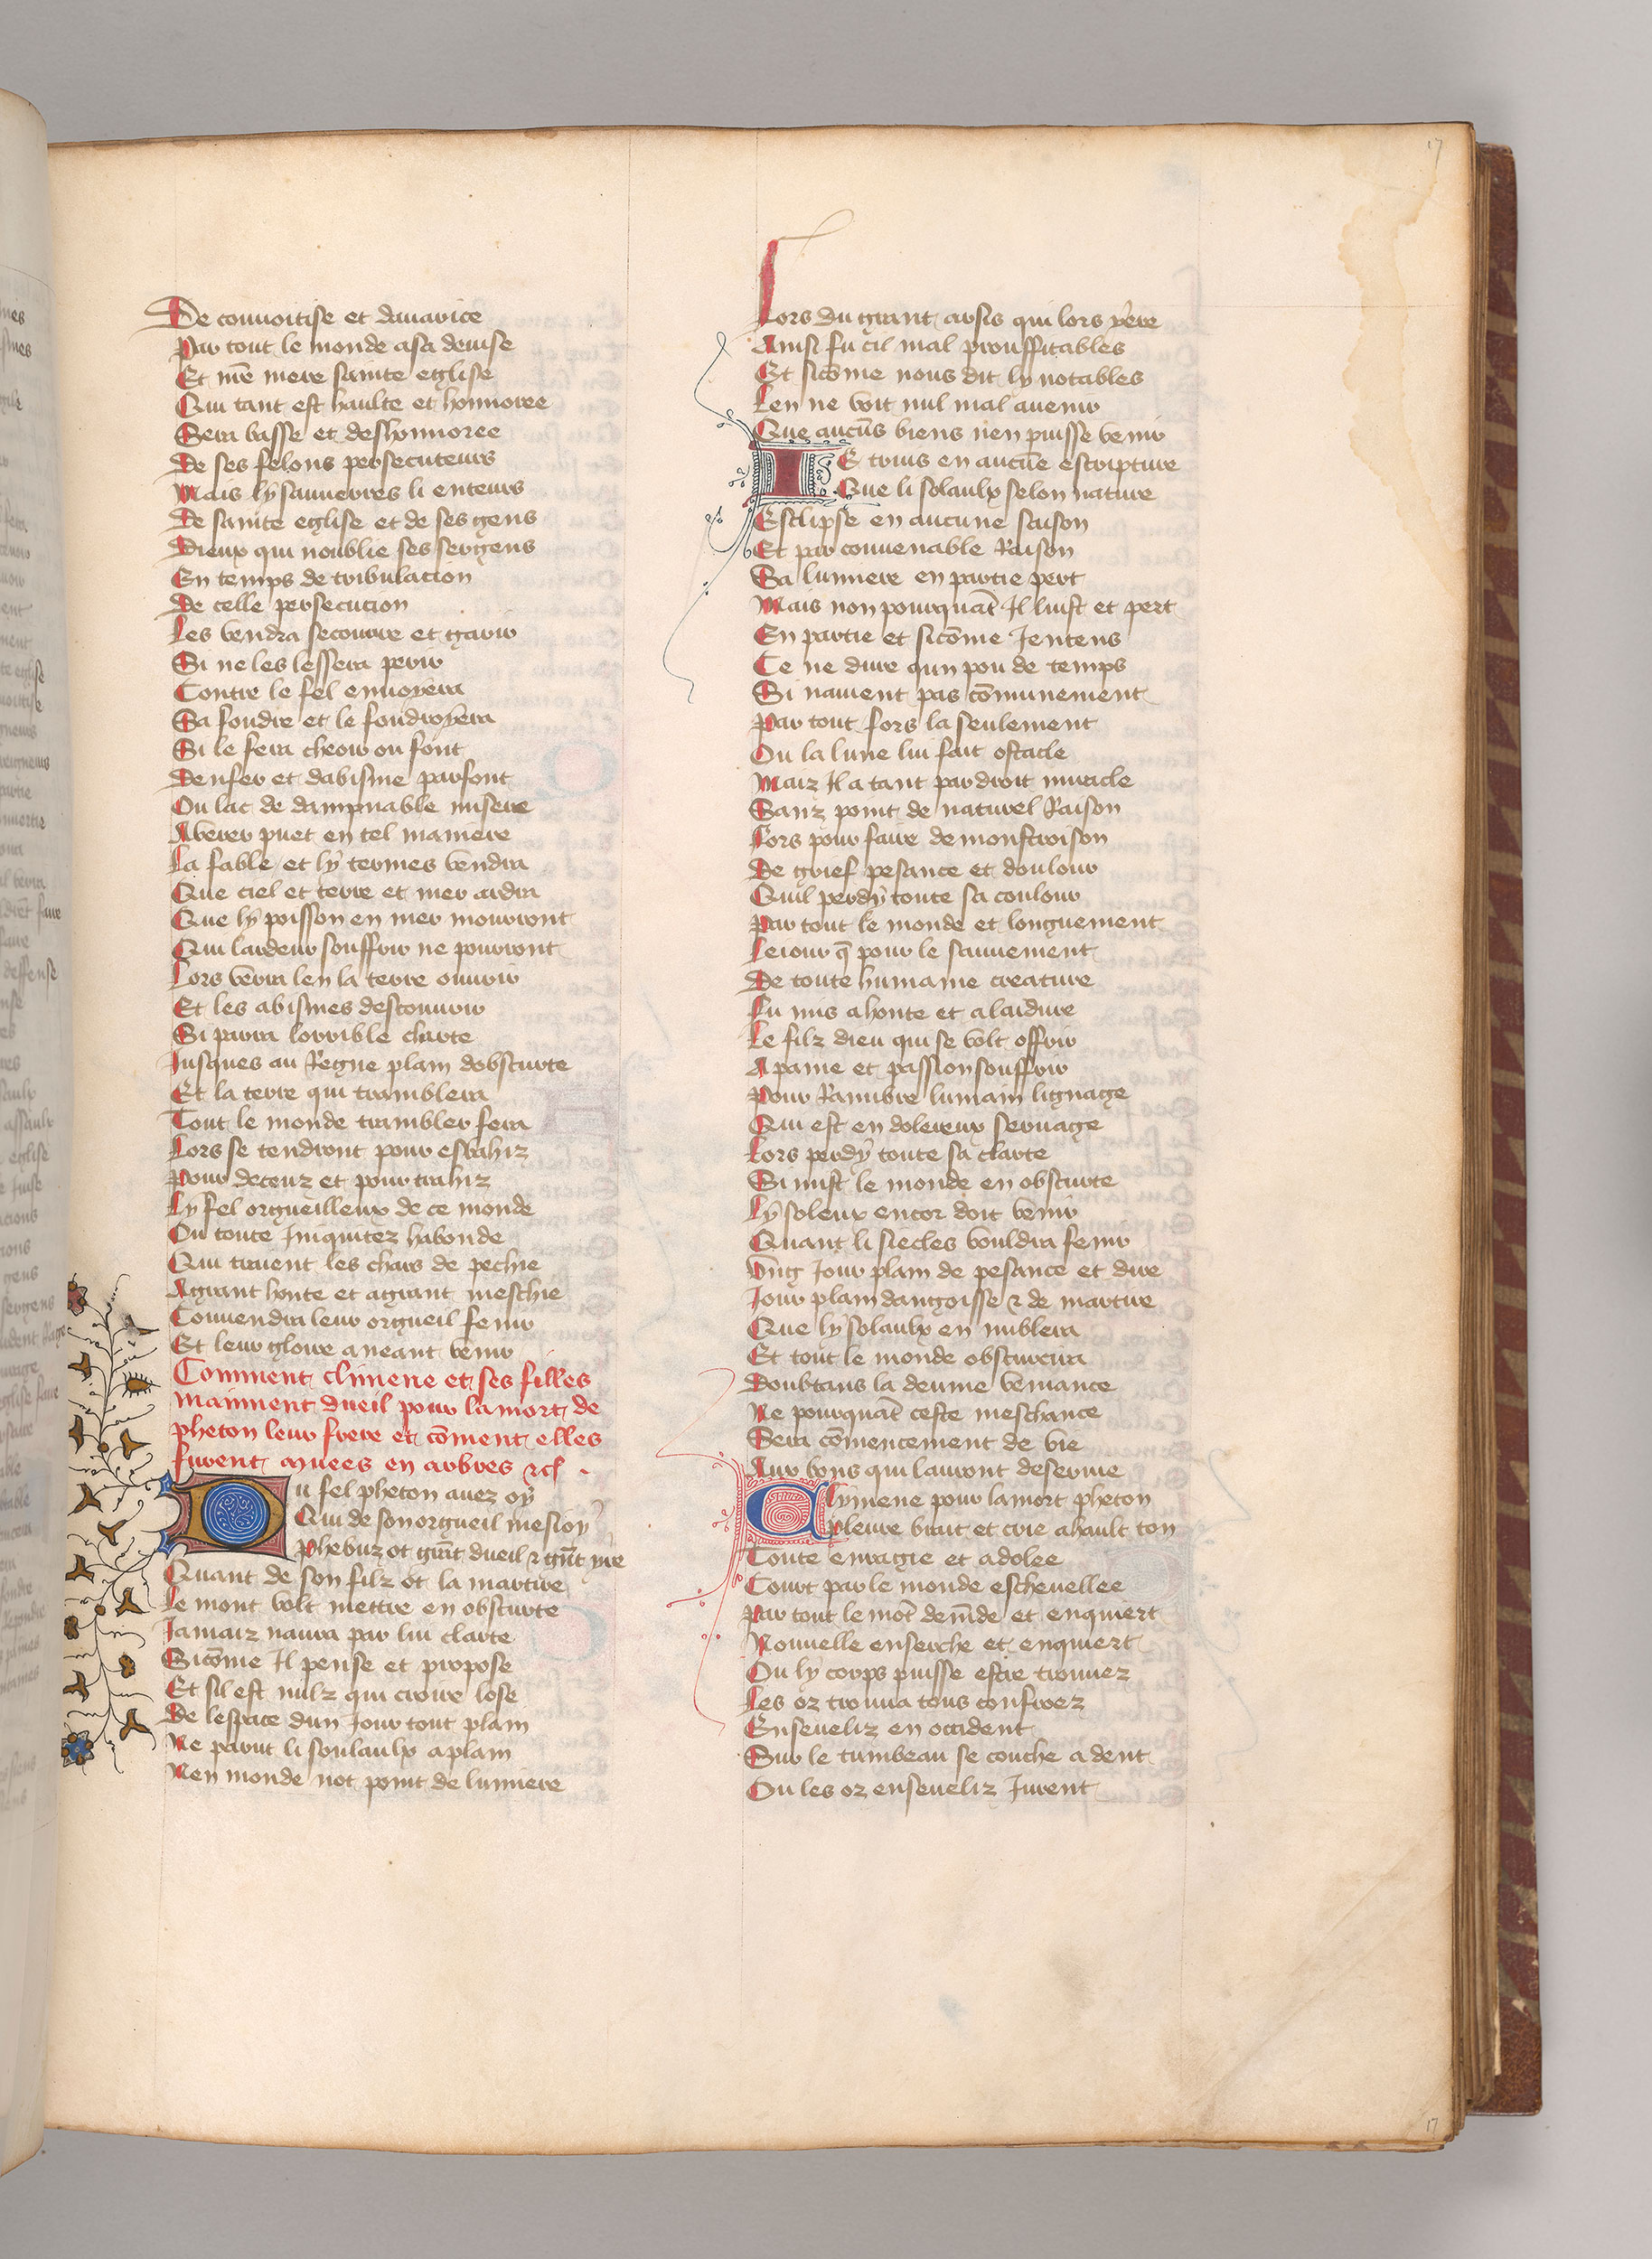 17
De couuoitise et dauarice
Par tout le monde a sa deuise
Et nr̄e mere sainte eglise
Qui tant est haulte et honnoree
Sera basse et deshonnoree
De ses felons persecuteurs
Mais ly sauuerres li enteurs
De sainte eglise et de ses gens
Dieux qui noublie ses sergens
En temps de tribulacion
De celle persecucion
Les vendra secourre et garir
Si ne les lessera perir
Contre le fel enuoyera
Sa foudre et le foudroyera
Si le fera cheoir ou font
Denfer et dabisme parfont
Ou lac de dampnable misere
Averer puet en tel maniere
La fable et ly termes vendra
Que ciel et terre et mer ardra
Que ly poisson en mer mourront
Qui lardeur souffrir ne pourront
Lors verra len la terre ouurir
Et les abismes descouurir
Si parra lorrible clarte
Jusques au Regne plain dobscurte
Et la terre qui tramblera
Tout le monde trambler fera
Lors se tendront pour esbahiz
Pour deceuz et pour trahiz
Ly fel orgueilleux de ce monde
Ou toute Iniquitez habonde
Qui traient les chars de pechie
A grant honte et a grant meschie
Conuendra leur orgueil fenir
Et leur gloire a neant venir
Comment climene et ses filles
mainnent dueil pour la mort de
pheton leur frere et cōment elles
furent muees en arbres
Du fel pheton auez oy
Qui de son orgueil mesioy
Phebuz ot grāt dueil & grāt yre
Quant de son filz ot la martire
Le mont volt mettre en obscurte
Jamaiz naura par lui clarte
Sicōme Il pense et propose
Et sil est nulz qui croire lose
De lespace dun Jour tout plain
Ne parut li soulaulx a plain
Nen monde not point de lumiere
Lors du grant arsis qui lors yere
Ainsi fu cil mal prouffitables
Et sicōme nous dit ly notables
Len ne voit nul mal auenir
Que aucūs biens nen puisse venir
Je truis en aucūe escripture
Que li solaulx selon nature
Esclipse en aucune saison
Et par conuenable Raison
Sa lumiere en partie pert
Mais non pourquāt Il luist et pert
En partie et sicōme Jentens
Ce ne dure qun pou de temps
Si nauient pas cōmunement
Par tout fors la seulement
Ou la lune lui fait ostacle
Maiz Il a tant par droit miracle
Sanz point de naturel Raison
Lors pour faire demonstroison
De grief pesance et doulour
Quil perdy toute sa coulour
Par tout le monde et longuement
Le iour q̄ pour le sauuement
De toute humaine creature
Fu mis a honte et a laidure
Le filz dieu qui se volt offrir
A paine et passion souffrir
Pour Raimbre lumain lignage
Qui est en dolereux seruage
Lors perdy toute sa clarte
Si mist le monde en obscurte
Ly soleux encor doit venir
Quant li siecles vouldra fenir
Vng Jour plain de pesance et dire
Jour plain dangoisse & de martire
Que ly solaulx en nublera
Et tout le monde obscurcira
Doubtans la deuine veniance
Ne pourquāt ceste meschance
Sera cōmencement de vie
Aux bons qui lauront deseruie
Clymene pour la mort pheton
Pleure brait et crie a hault ton
Toute enragie et adolee
Court par le monde escheuellee
Par tout le mōt demāde et enquiert
Nouuelle enserche et enquiert
Ou ly corps puisse estre trouuez
Les oz trouua tous
Enseueliz en occident
Sur le tumbeau se couche a dent
Ou les oz enseueliz Jurent
17